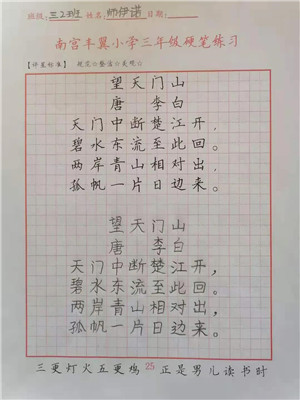 班级:三2班 姓名:师伊诺 日期:
南宫丰翼小学三年级硬笔练习
【评星标准】 规范☆整洁☆美观☆
望天门山
唐 李白
天门中断楚江开,
碧水东流至此回。
两岸青山相对出,
孤帆一片日边来。
望天门山
唐 李白
天门中断楚江开,
碧水东流至此回。
两岸青山相对出,
孤帆一片日边来。
三更灯火五更鸡 25 正是男儿读书时